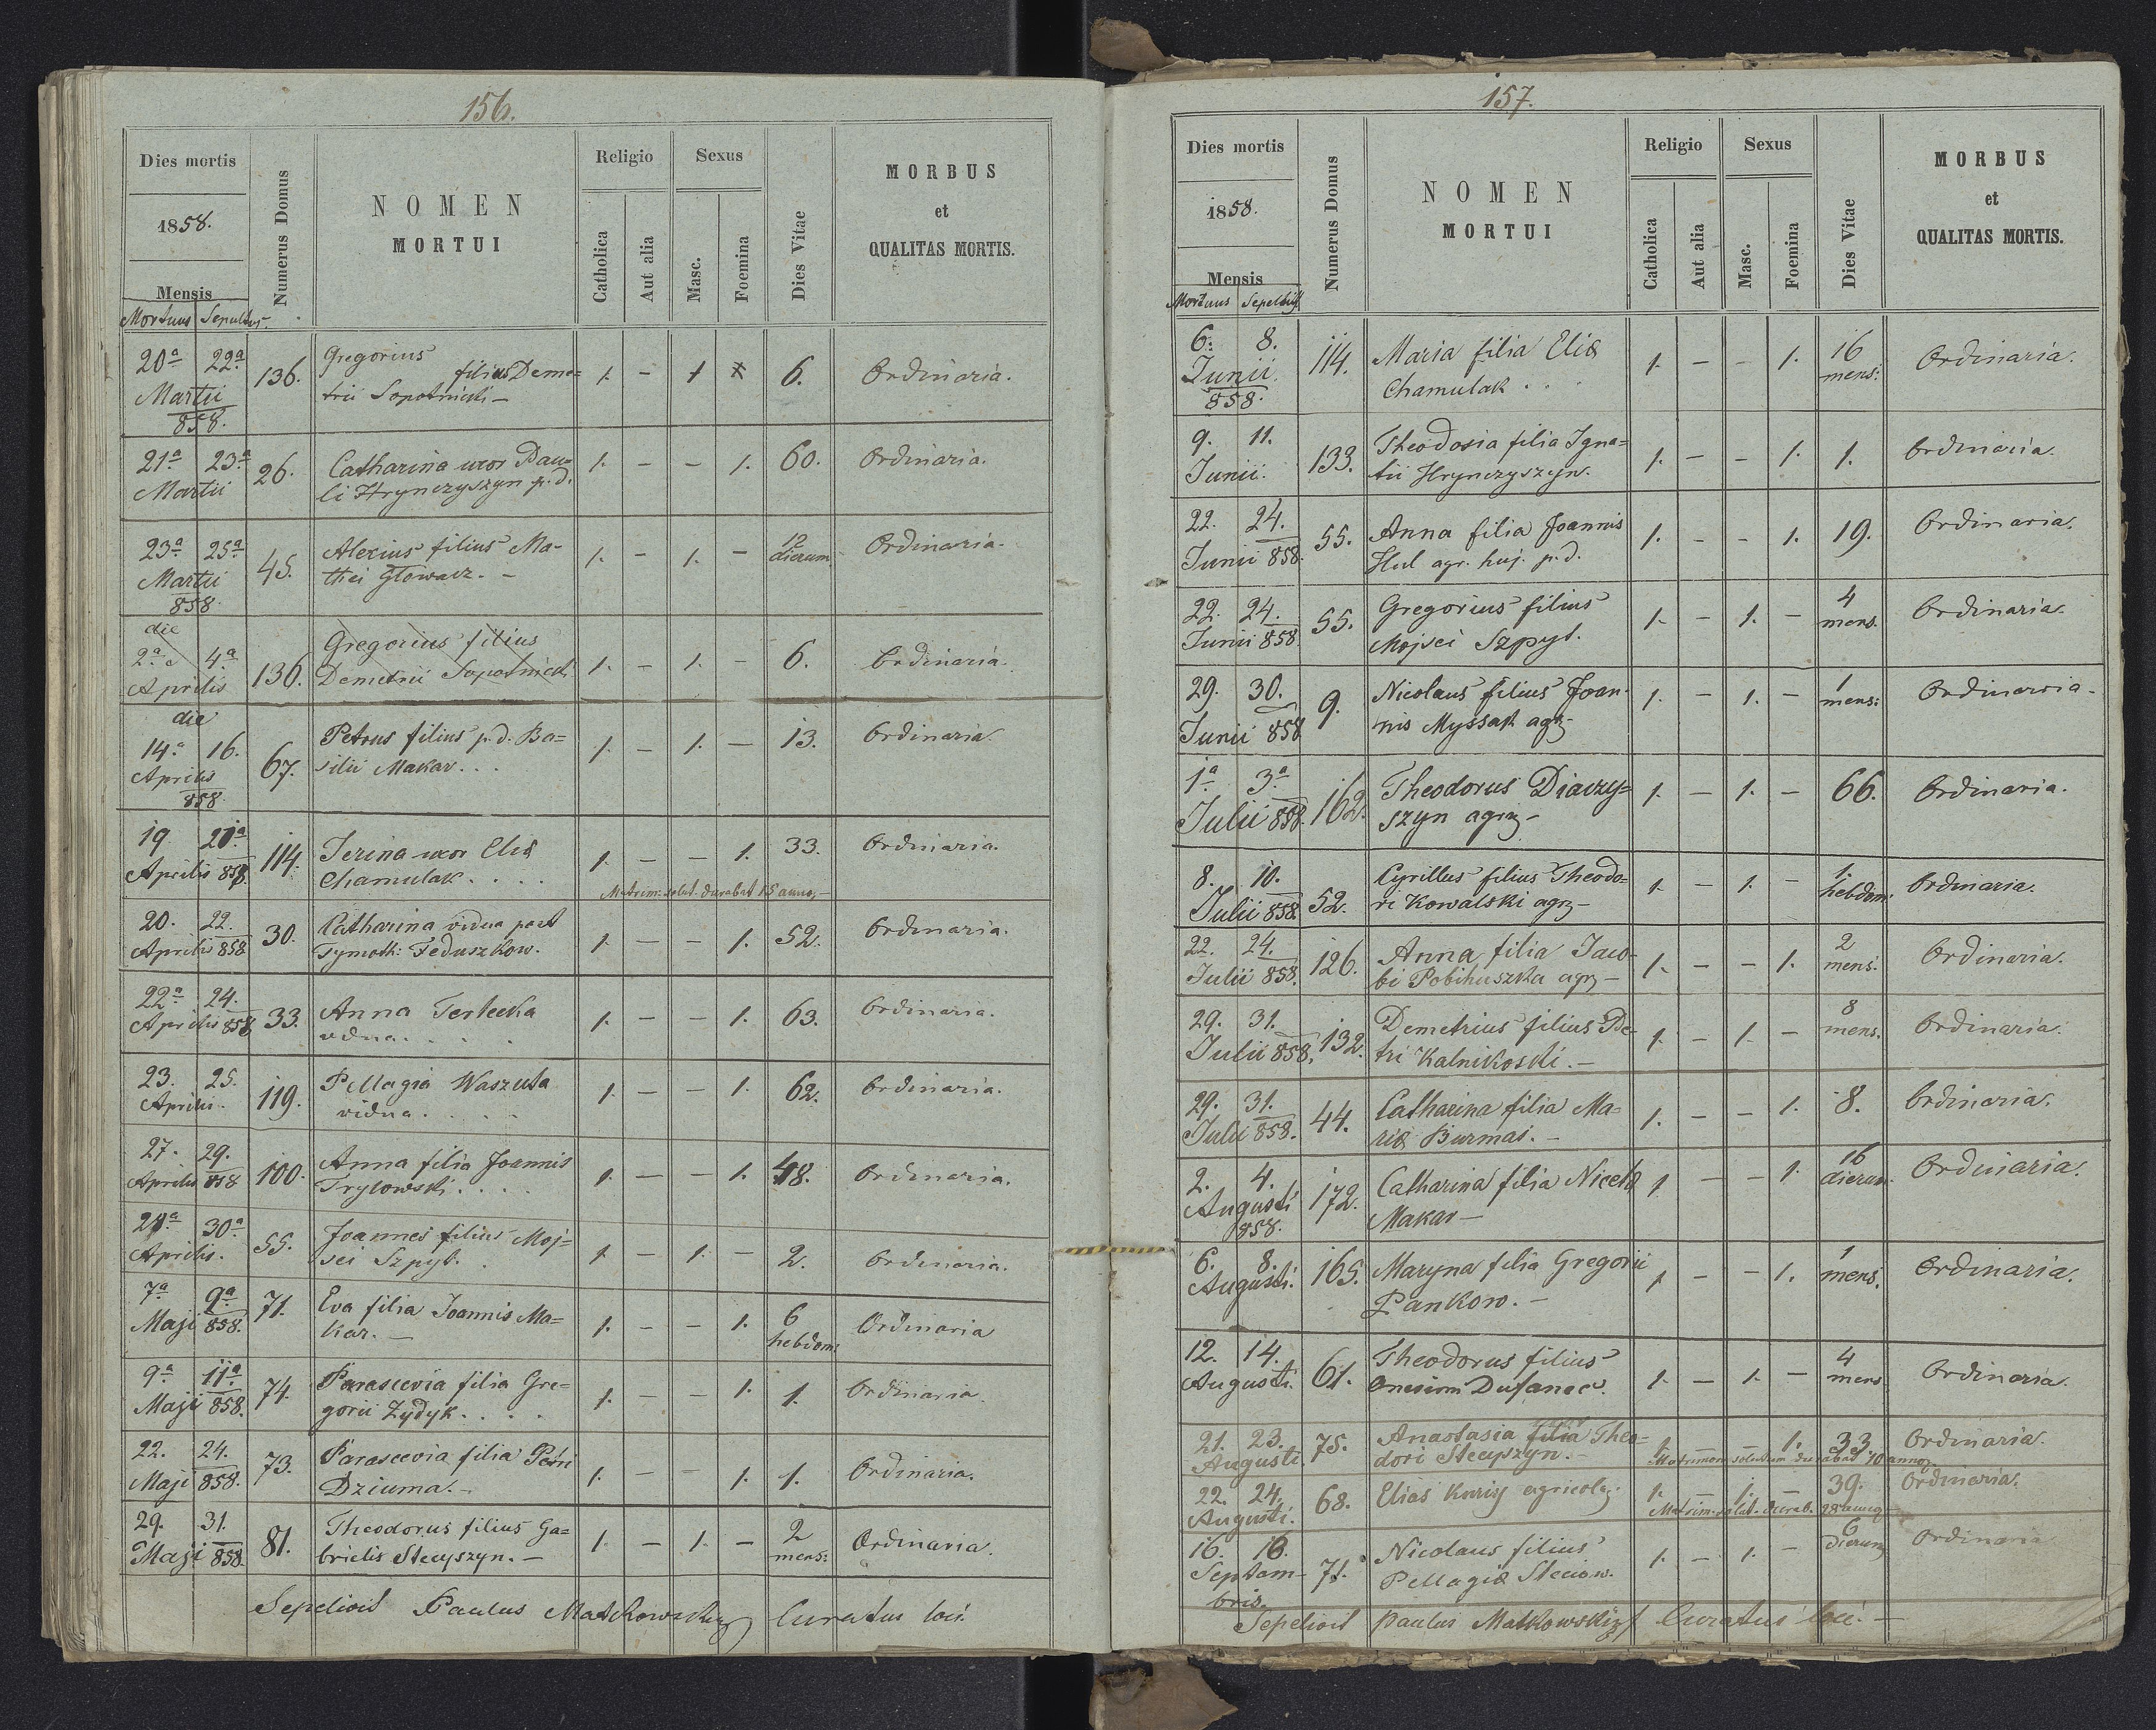 156.
Dies mortis
1858.
Mensis
Mortuus Sepultus
Numerus Domus
NOMEN
MORTUI
Religio
Catholica
Aut alia
Sexus
Masc.
Foemina
Dies Vitae
MORBUS
et
QUALITAS MORTIS.
20ª 22ª Martii 858. 136. Gregorius filius Deme= 1. - 1 6. Ordinaria.
trii Sopotnicki -
21ª 23ª Martii 26. Catharina uxor Pau= 1. - - 1. 60. Ordinaria.
li Hrynczyszyn p. d.
23ª 25ª Martii 858 45. Alexius filius Ma- 1. - 1. - 12 dierum Ordinaria.
thei Głowacz. -
die 2ª 4ª Aprilis 136. Gregorius filius 1. - 1. - 6. Ordinaria.
Demetrii Sopotnicki
die 14ª 16. Aprilis 858 67. Petrus filius p. d. Ba= 1. - 1. - 13. Ordinaria.
silii Makar. . .
19. 21ª Aprilis 858. 114. Irina uxor Eliæ 1. - - 1. 33. Ordinaria.
Chamulak. . . .
Matrim: solut. durabat 15 annos -
20. 22. Aprilis 858 30. Catharina vidua post 1. - - 1. 52. Ordinaria.
Tymoth: Feduszkow.
22ª 24. Aprilis 858 33. Anna Terlecka 1. - - 1. 63. Ordinaria.
vidua. . . .
23. 25. Aprilis. 119. Pellagia Waszuta 1. - - 1. 62. Ordinaria.
vidua. . . .
27. 29. Aprilis 858 100. Anna filia Joannis 1. - - 1. 48. Ordinaria.
Tryłowski. . . .
30ª Aprilis. 55. Joannes filius Moj= 1. - 1. - 2. Ordinaria.
sei Szpyt.
7ª 9ª Maji 858. 71. Eva filia Joannis Ma= 1. - - 1. 6 hebdom: Ordinaria
kar. -
9ª 11ª Maji 858. 74. Parascevia filia Gre= 1. - - 1. 1. Ordinaria.
gorii Zydyk. . . .
22. 24. Maji 858. 73. Parascevia filia Petri 1. - - 1. 1. Ordinaria.
Dziuma. -
29. 31. Maji 858 81. Theodorus filius Ga= 1. - 1. - 2 mens: Ordinaria.
brielis Stecyszyn. -
Sepelivit Paulus Matkowski Curatus loci.
157.
Dies mortis
1858.
Mensis
Mortuus
Numerus Domus
NOMEN
MORTUI
Religio
Catholica
Aut alia
Sexus
Masc.
Foemina
Dies Vitae
MORBUS
et
QUALITAS MORTIS.
6. 8. Junii 858. 114. Maria filia Eliæ 1. - - 1. 16 mens: Ordinaria.
Chamulak . .
9. 11. Junii. 133. Theodosia filia Igna= 1. - - 1. 1. Ordinaria.
tii Hrynczyszyn.
22. 24. Junii 858. 55. Anna filia Joannis 1. - - 1. 19. Ordinaria.
Hul agr. huj. p. d.
22. 24. Junii 858 55. Gregorius filius 1. - 1. - 4 mens. Ordinaria.
Mojsei Szpyt.
29. 30. Junii 858 9. Nicolaus filius Joan- 1. - 1. - 1 mens: Ordinaria.
nis Myssak agr. -
1ª 3ª Julii 858. 162. Theodorus Diaczy= 1. - 1. - 66. Ordinaria.
szyn agr. -
8. 10. Julii 858. 52. Cyrillus filius Theodo= 1. - 1. - 1. hebdom: Ordinaria.
ri Kowalski agr. -
22. 24. Julii 858. 126. Anna filia Jaco- 1. - - 1. 2 mens: Ordinaria.
bi Pobihuszka agr. -
29. 31. Julii 858. 132. Demetrius filius Pe- 1. - 1. - 8 mens. Ordinaria.
tri Kalnikoski. -
29. 31. Julii 858. 44. Catharina filia Ma= 1. - - 1. 8. Ordinaria.
riæ Burmai. -
2. 4. Augusti 858. 172. Catharina filia Nicetæ 1 - - 1. 16 dierum. Ordinaria.
Makar -
6. 8. Augusti. 165. Maryna filia Gregorii 1 - - 1. 1 mens. Ordinaria.
Pankow. -
12. 14. Augusti. 61. Theodorus filius 1. - 1. - 4 mens Ordinaria.
Onesimi Dufanec.
21. 23. Augusti. 75. Anastasia filia Theo= 1. - - 1. 33. Ordinaria.
dori Stecyszyn. -
Matrimon: solutum durabat 10 annos.
22. 24. Augusti. 68. Elias agricola. 1. - 1. - 39. Ordinaria.
Matrim. solut. durab. 28 annos
16. 18. Septem- bris. 71. Nicolaus filius 1. - 1. - 6 dierum Ordinaria
Pellagiæ Steciow.
Sepelivit Paulus Matkowski Curatus loci. -